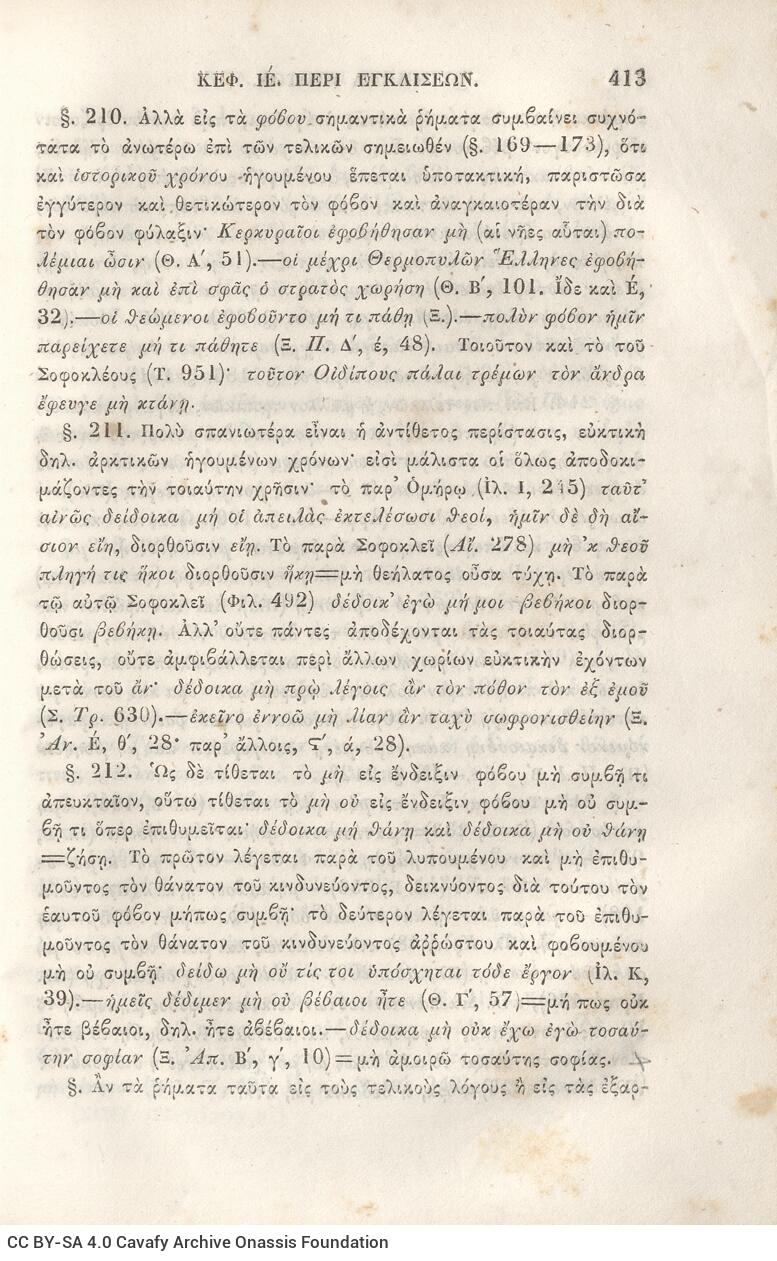 ΚΕΦ. ΙΕ΄. ΠΕΡΙ ΕΓΚΛΙΣΕΩΝ. 413
§. 210. Ἀλλὰ εἰς τὰ φόβου σημαντικὰ ῥήματα συμβαίνει συχνό-
τατα τὸ ἀνωτέρω ἐπὶ τῶν τελικῶν σημειωθέν (§. 169—173), ὅτι
καὶ ἱστορικοῦ χρόνου ἡγουμένου ἕπεται ὑποτακτική, παριστῶσα
ἐγγύτερον καὶ θετικώτερον τὸν φόβον καὶ ἀναγκαιοτέραν τὴν διὰ
τὸν φόβον φύλαξιν· Κερκυραῖοι ἐφοβήθησαν μὴ (αἱ νῆες αὗται) πο-
λέμιαι ὦσιν (Θ. Α΄, 51).—οἱ μέχρι Θερμοπυλῶν Ἕλληνες ἐφοβή-
θησαν μὴ καὶ ἐπὶ σφᾶς ὁ στρατὸς χωρήσῃ (Θ. Β΄, 101. Ἴδε καὶ Ε΄,
32).—οἱ θεώμενοι ἐφοβοῦντο μή τι πάθῃ (Ξ.).—πολὺν φόβον ἡμῖν
παρείχετε μή τι πάθητε (Ξ. Π. Δ΄, έ, 48). Τοιοῦτον καὶ τὸ τοῦ
Σοφοκλέους (Τ. 951)· τοῦτον Οἰδίπους πάλαι τρέμων τὸν ἄνδρα
ἔφευγε μὴ κτάνῃ.
§. 211. Πολὺ σπανιωτέρα εἶναι ἡ ἀντίθετος περίστασις, εὐκτικὴ
δηλ. ἀρκτικῶν ἡγουμένων χρόνων· εἰσὶ μάλιστα οἱ ὅλως ἀποδοκι-
μάζοντες τὴν τοιαύτην χρῆσιν· τὸ παρ' Ὁμήρῳ (Ἰλ. Ι, 245) ταῦτ'
αἰνῶς δείδοικα μή οἱ ἀπειλὰς ἐκτελέσωσι θεοί, ἡμῖν δὲ δὴ αἴ-
σιον εἴη, διορθοῦσιν εἴῃ. Τὸ παρὰ Σοφοκλεῖ (Αἴ. 278) μὴ 'κ θεοῦ
πληγή τις ἥκοι διορθοῦσιν ἥκῃ=μὴ θεήλατος οὖσα τύχῃ. Τὸ παρὰ
τῷ αὐτῷ Σοφοκλεῖ (Φιλ. 492) δέδοικ' ἐγὼ μή μοι βεβήκοι διορ-
θοῦσι βεβήκῃ. Ἀλλ' οὔτε πάντες ἀποδέχονται τὰς τοιαύτας διορ-
θώσεις, οὔτε ἀμφιβάλλεται περὶ ἄλλων χωρίων εὐκτικὴν ἐχόντων
μετὰ τοῦ ἄν· δέδοικα μὴ πρῲ λέγοις ἂν τὸν πόθον τὸν ἐξ ἐμοῦ
(Σ. Τρ. 630).—ἐκεῖνο ἐννοῶ μὴ λίαν ἂν ταχὺ σωφρονισθείην (Ξ.
Ἀν. Ε΄, θ΄, 28· παρ' ἄλλοις, Ϛ΄, ά, 28).
§. 212. Ὡς δὲ τίθεται τὸ μὴ εἰς ἔνδειξιν φόβου μὴ συμβῇ τι
ἀπευκταῖον, οὕτω τίθεται τὸ μὴ οὐ εἰς ἔνδειξιν φόβου μὴ οὐ συμ-
βῇ τι ὅπερ ἐπιθυμεῖται· δέδοικα μὴ θάνῃ καὶ δέδοικα μὴ οὐ θάνῃ
=ζήσῃ. Τὸ πρῶτον λέγεται παρὰ τοῦ λυπουμένου καὶ μὴ ἐπιθυ-
μοῦντος τὸν θάνατον τοῦ κινδυνεύοντος, δεικνύοντος διὰ τούτου τὸν
ἑαυτοῦ φόβον μήπως συμβῇ· τὸ δεύτερον λέγεται παρὰ τοῦ ἐπιθυ-
μοῦντος τὸν θάνατον τοῦ κινδυνεύοντος ἀῤῥώστου καὶ φοβουμένου
μὴ οὐ συμβῇ· δείδω μὴ οὔ τίς τοι ὑπόσχηται τόδε ἔργον (Ἰλ. Κ,
39).—ἡμεῖς δέδιμεν μὴ οὐ βέβαιοι ἦτε (Θ. Γ΄, 57)=μή πως οὐκ
ἦτε βέβαιοι, δηλ. ἦτε ἀβέβαιοι.—δέδοικα μὴ οὐκ ἔχω ἐγὼ τοσαύ-
την σοφίαν (Ξ. Ἀπ. Β΄, γ΄, 10)=μὴ ἀμοιρῶ τοσαύτης σοφίας.
§. Ἂν τὰ ῥήματα ταῦτα εἰς τοὺς τελικοὺς λόγους ἢ εἰς τὰς ἐξαρ-
CC BY-SA 4.0 Cavafy Archive Onassis Foundation